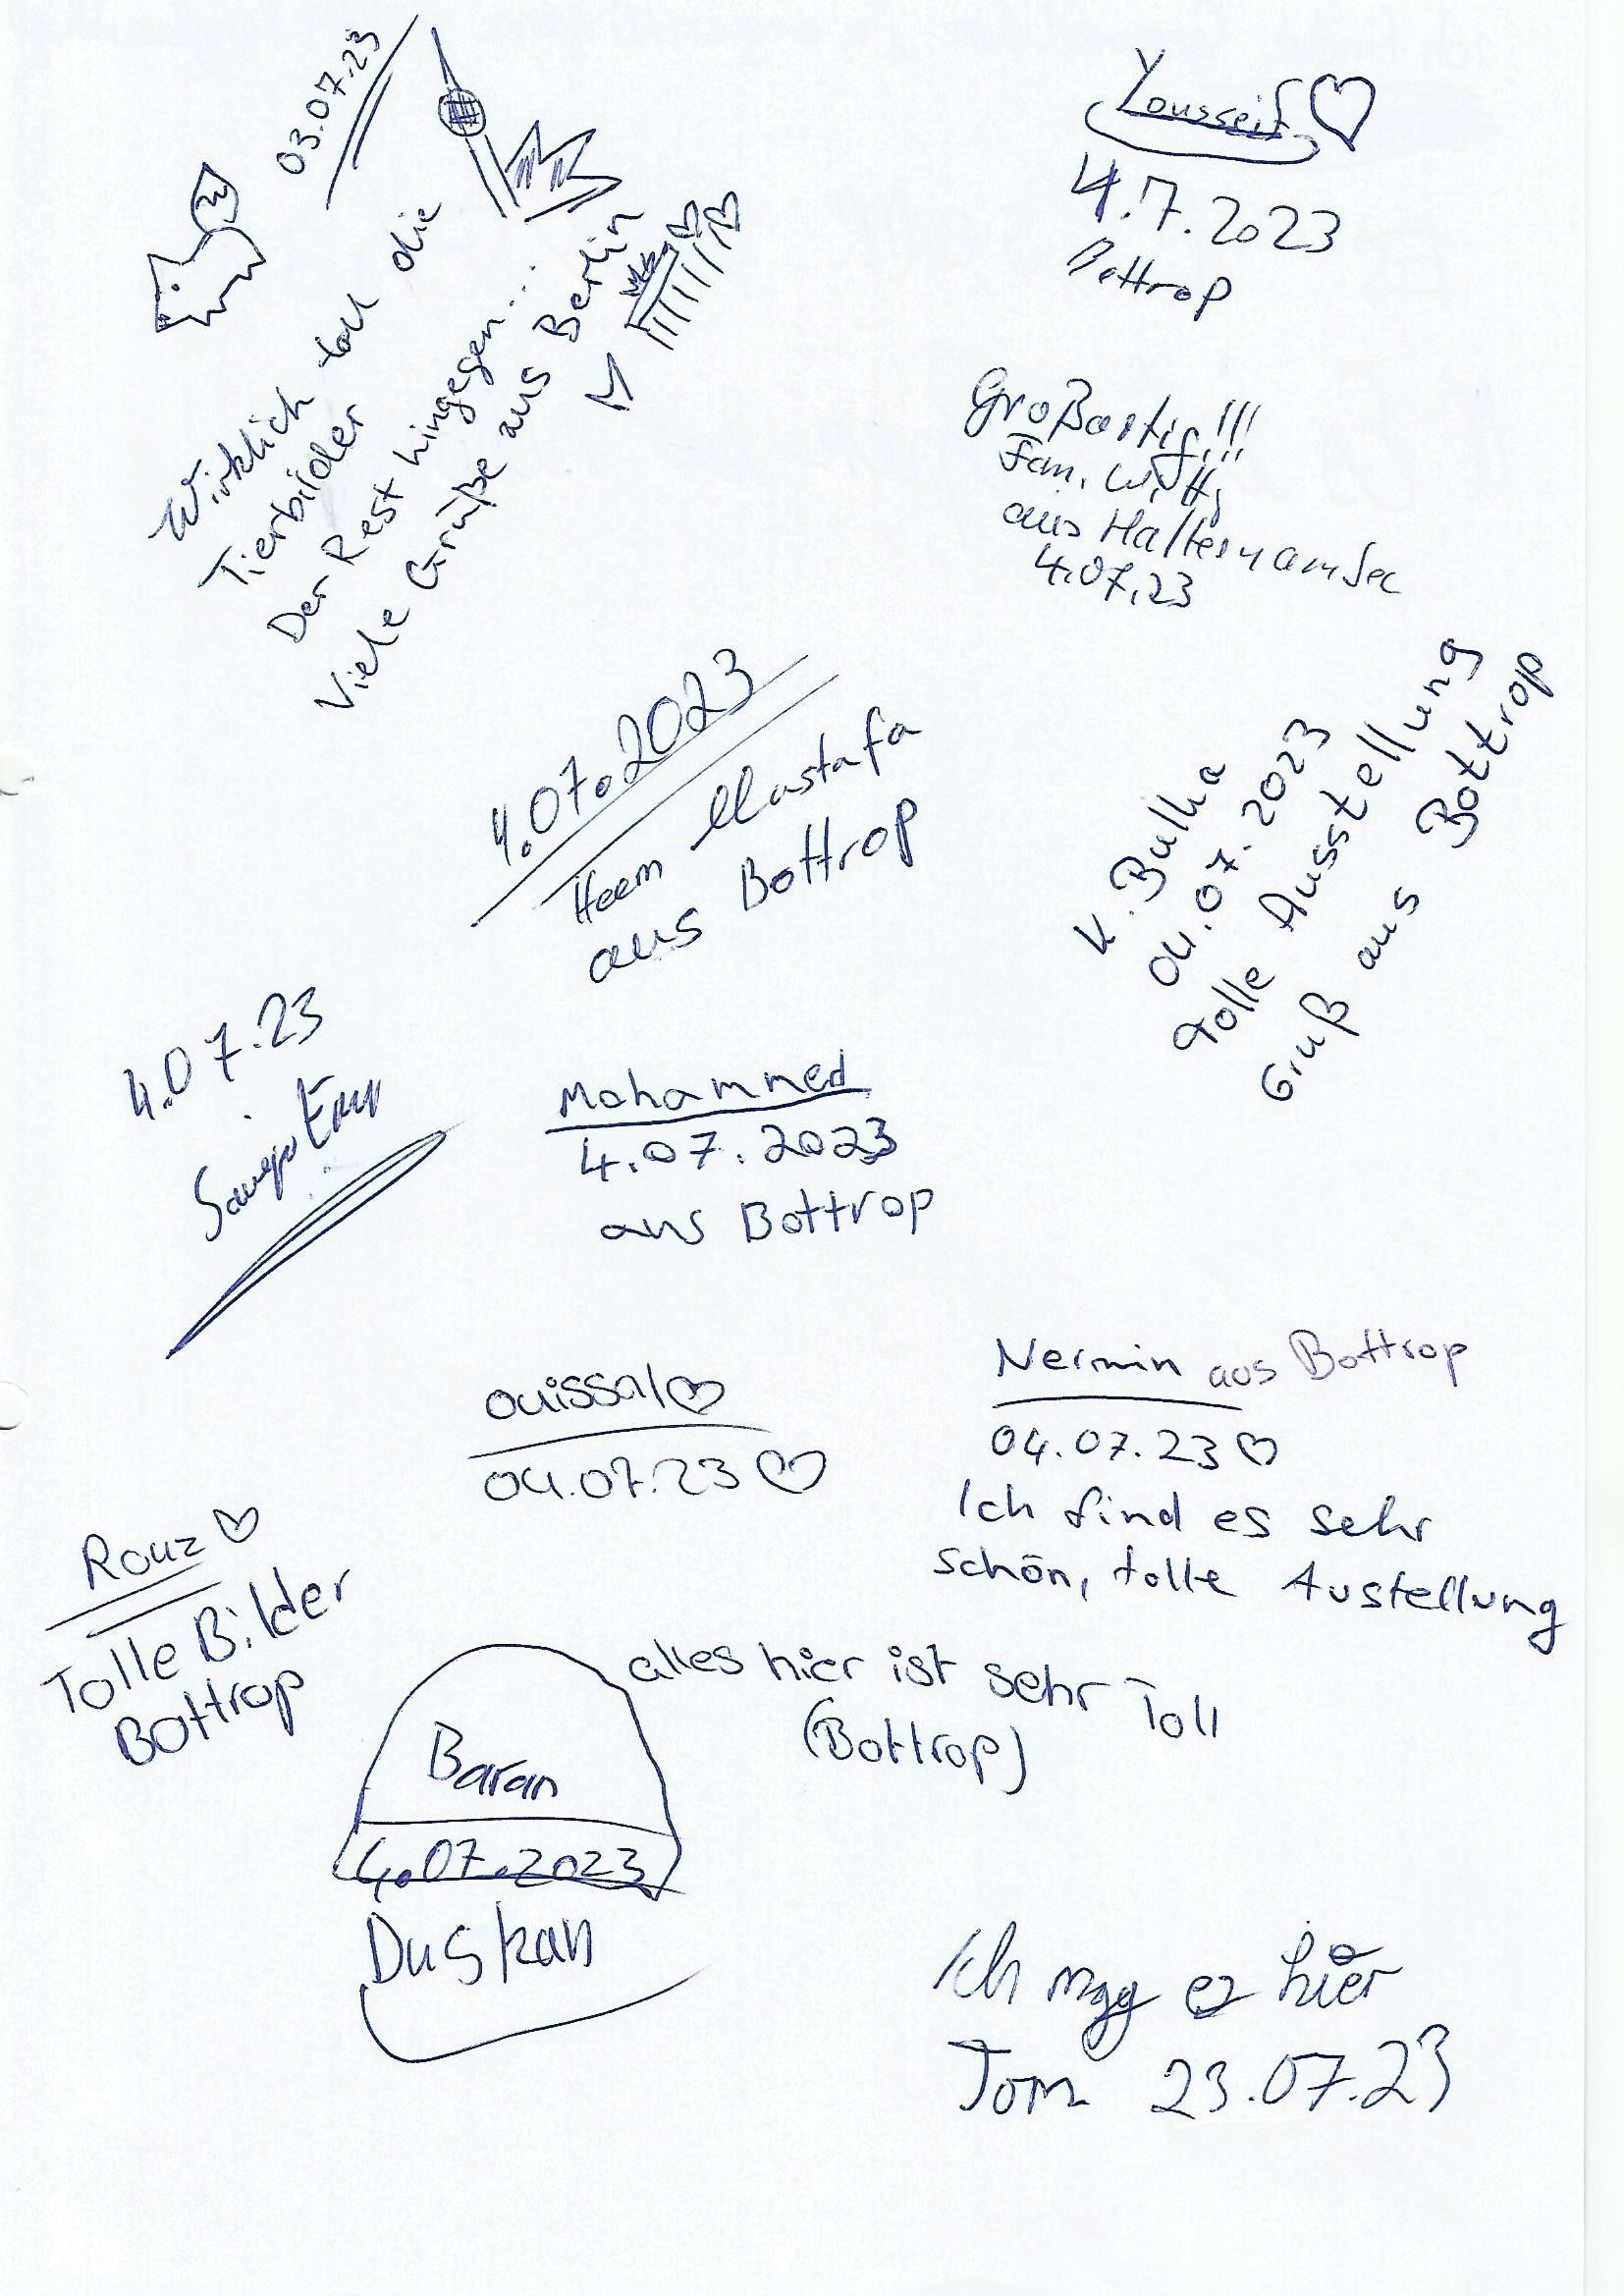 03.07.23
Wirklich toll die
Tierbilder
Der Rest hingegen...
Viele Grüße aus Berlin
Yousseif
4.7.2023
Bottrop
Großartig!!!
Fam. Wittig
aus Haltern am See
4.07.23
4.07.2023
Mastafa
aus Bottrop
K. Bulka
04.07.2023
Tolle Ausstellung
Gruß aus Bottrop
4.07.23
Mohammed
4.07.2023
aus Bottrop
ouissal
04.07.23
Nermin aus Bottrop
04.07.23
Ich find es sehr
schön, tolle Austellung
Rouz
Tolle Bilder
Bottrop
alles hier ist sehr Toll
(Bottrop)
Baran
4.07.2023
Duskan
Ich mag es hier
Tom 23.07.23